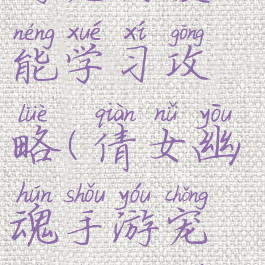 néng xué xí gōng
能学习攻
lüè qiàn nǚ yōu
略(倩女幽
hún shǒu yóu chǒng
魂手游宠